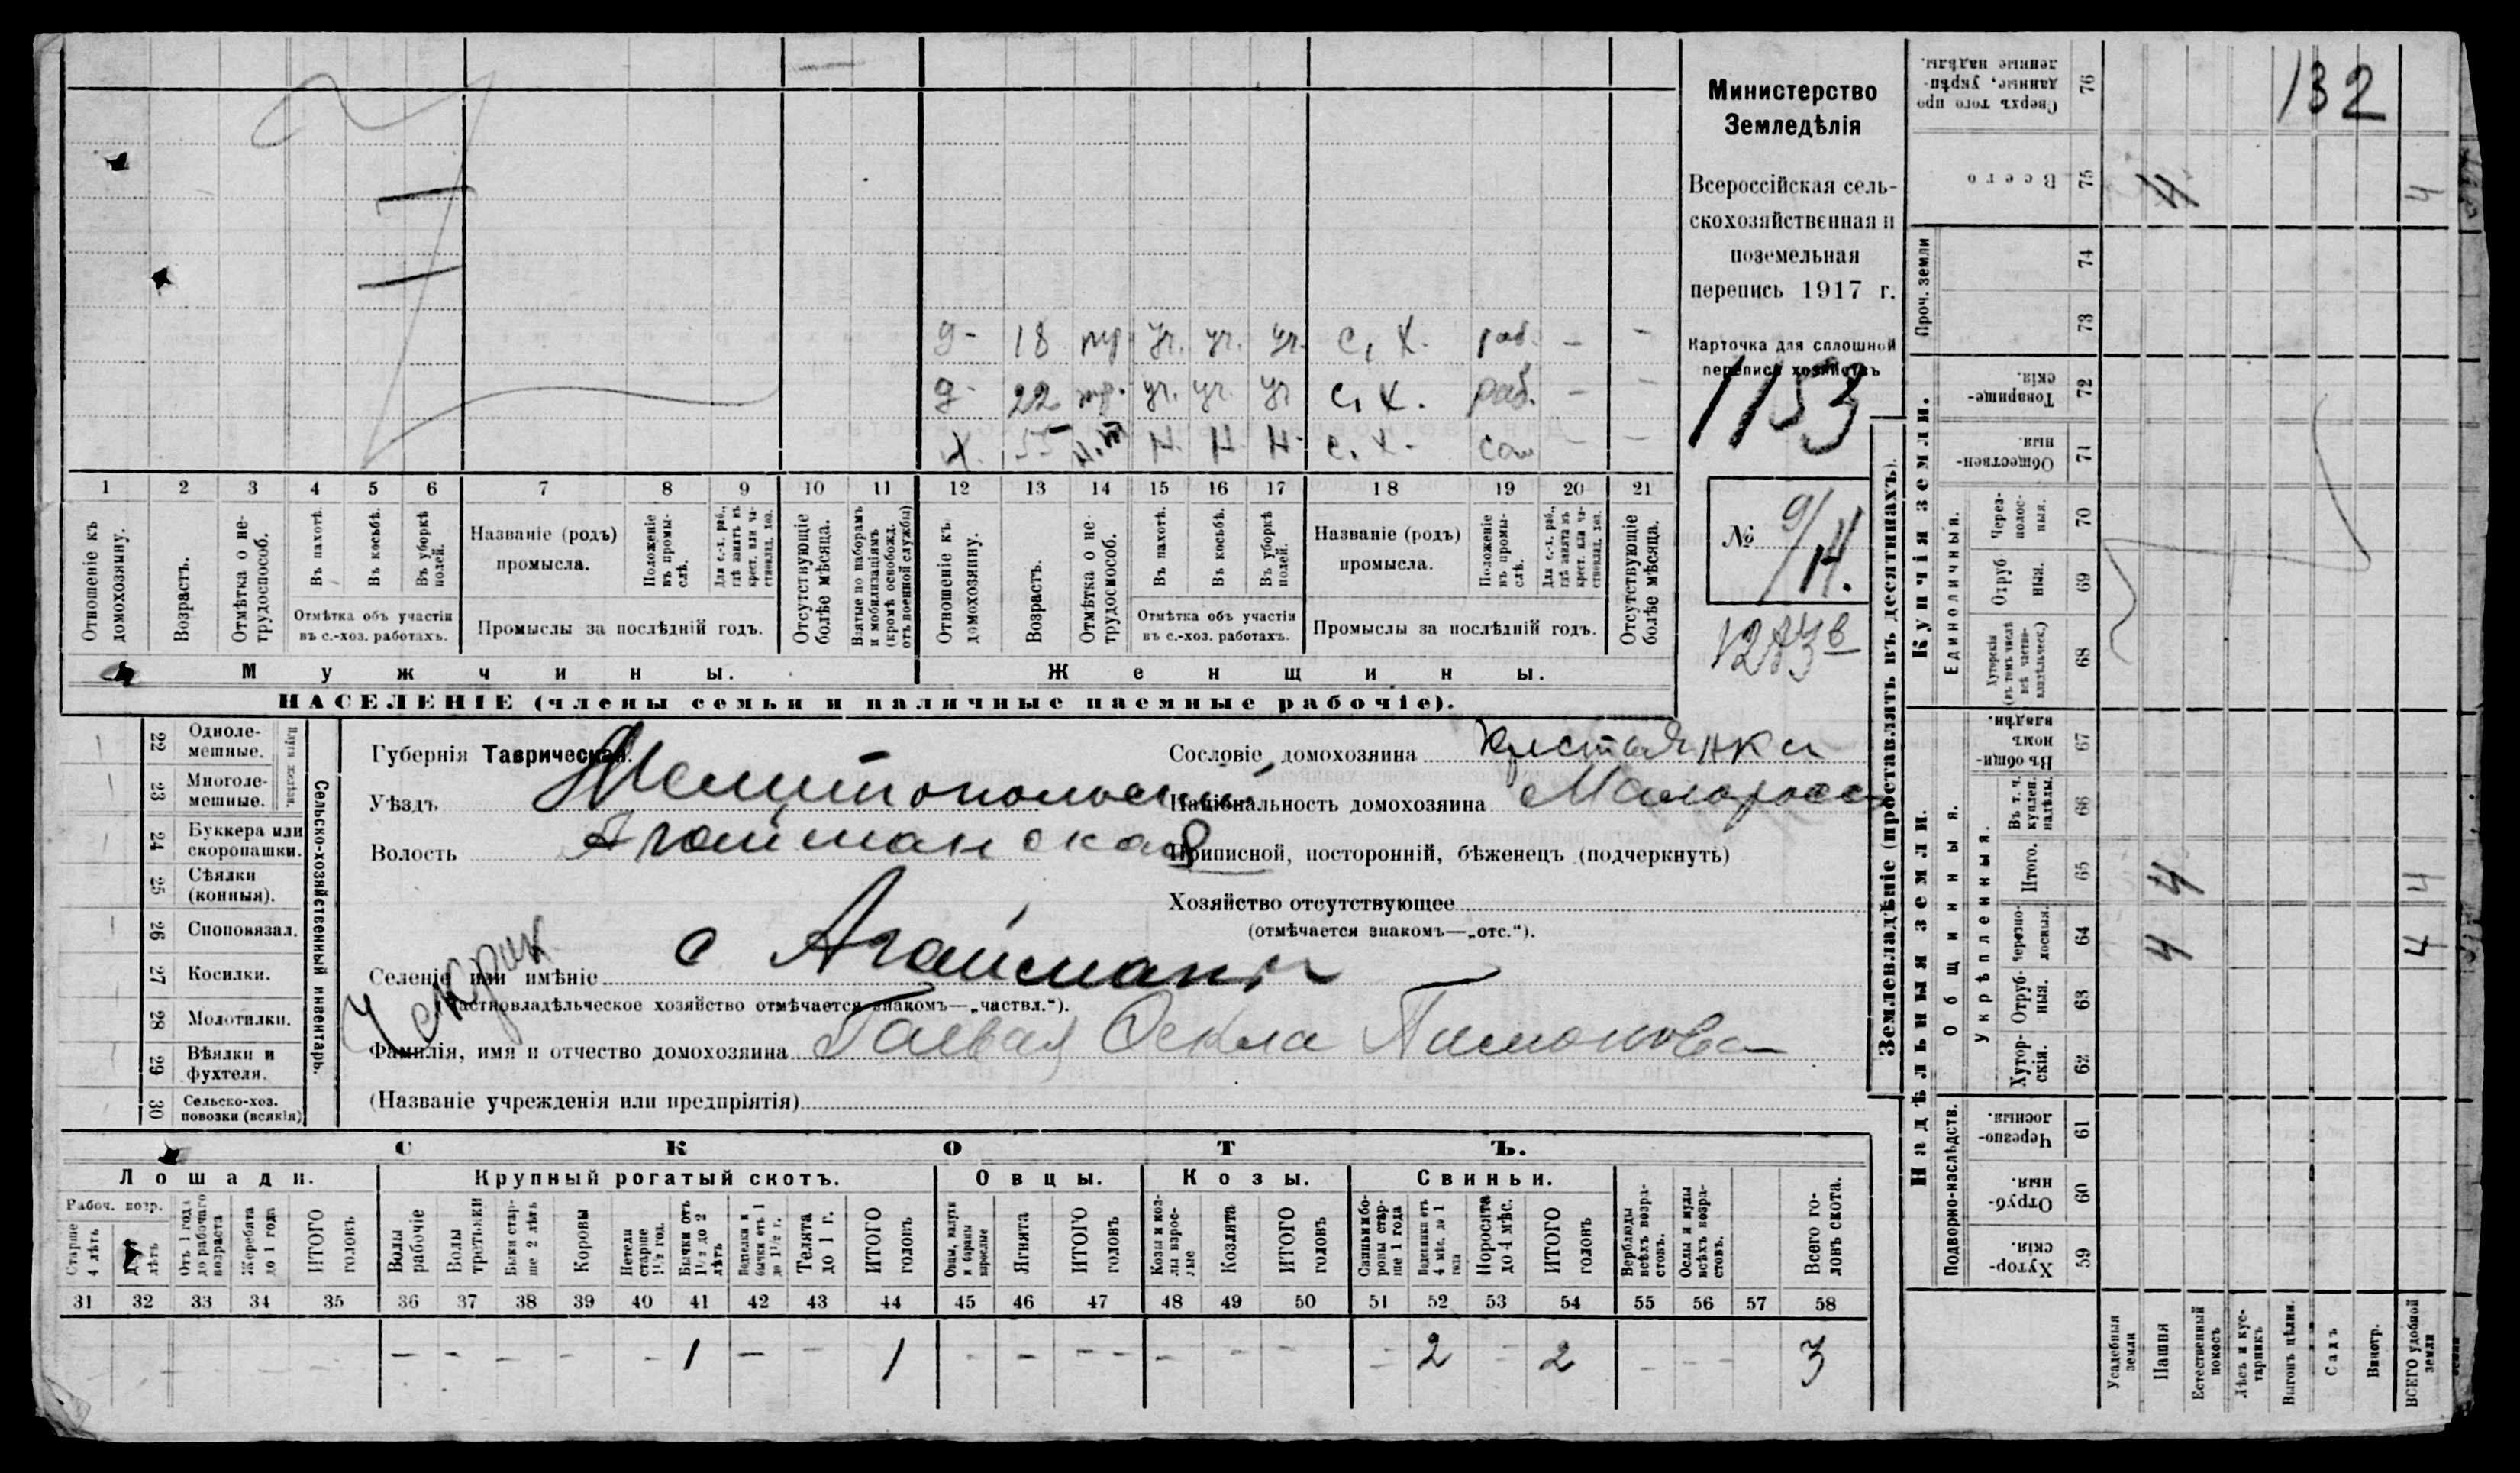 132
Министерство
Земледѣлія
Всероссійская сель-
скохозяйственная и
поземельная
перепись 1917 г.
Карточка для сплошной
переписи хозяйствъ
1153
№ 9/14.
д- 18 тр. уч. уч. уч. с. х. раб. - -
д- 22 тр. уч. уч. уч с. х. раб. - -
х. 55 Н. Н. Н. с. х. сам - -
1 2 3 4 5 6 7 8 9 10 11 12 13 14 15 16 17 18 19 20 21
Отношеніе къ домохозяину.
Возрастъ.
Отмѣтка о не-трудоспособ.
Въ пахотѣ.
Въ косьбѣ.
Въ уборкѣ полей.
Отмѣтка объ участіи
въ с.-хоз. работахъ.
Названіе (родъ)
промысла.
Положеніе въ промы-слѣ.
Для с.-х. раб., гдѣ занятъ въ крест. или ча-стновлад. хоз.
Промыслы за послѣдній годъ.
Отсутствующіе болѣе мѣсяца.
Взятые по наборамъ и мобилизаціямъ (кромѣ освобожд. отъ военной службы)
Отношеніе къ домохозяину.
Возрастъ.
Отмѣтка о не-трудоспособ.
Въ пахотѣ.
Въ косьбѣ.
Въ уборкѣ полей.
Отмѣтка объ участіи
въ с.-хоз. работахъ.
Названіе (родъ)
промысла.
Положеніе въ промы-слѣ.
Для с.-х. раб., гдѣ занятъ въ крест. или ча-стновлад. хоз.
Промыслы за послѣдній годъ.
Отсутствующіе болѣе мѣсяца.
Мужчины.
Женщины.
НАСЕЛЕНІЕ (члены семьи и наличные наемные рабочіе).
Сельско-хозяйственный инвентарь.
Плуги желѣзн.
22 Однолемешные.
23 Многолемешные.
24 Буккера или скоропашки.
25 Сѣялки (конныя).
26 Сноповязал.
27 Косилки.
28 Молотилки.
29 Вѣялки и фухтеля.
30 Сельско-хоз. повозки (всякія)
Губернія Таврическая.
Уѣздъ Мелитопольскій
Волость Агайманская
Селеніе или имѣніе с Агайманы
(Частновладѣльческое хозяйство отмѣчается знакомъ—„частвл.“).
Фамилія, имя и отчество домохозяина Гаевая Фекла Тимоновна
(Названіе учрежденія или предпріятія)
Сословіе домохозяина крестьянка
Національность домохозяина Малоросс
Приписной, посторонній, бѣженецъ (подчеркнуть)
Хозяйство отсутствующее
(отмѣчается знакомъ—„отс.“).
СКОТЪ.
Лошади. Крупный рогатый скотъ. Овцы. Козы. Свиньи.
Рабоч. возр.
Старше 4 лѣтъ
лѣтъ
Отъ 1 года до рабочаго возраста
Жеребята до 1 года
ИТОГО головъ
Волы рабочіе
Волы третьяки
Быки старше 2 лѣтъ
Коровы
Нетели старше 1½ год.
Бычки отъ 1½ до 2 лѣтъ
Подтелки и бычки отъ 1 до 1½ г.
Телята до 1 г.
ИТОГО головъ
Овцы, валухи и бараны взрослые
Ягнята
ИТОГО головъ
Козы и козлы взрослые
Козлята
ИТОГО головъ
Свиньи и боровы старше 1 года
Подсвинки отъ 4 мѣс. до 1 года
Поросята до 4 мѣс.
ИТОГО головъ
Верблюды всѣхъ возрастовъ.
Ослы и мулы всѣхъ возрастовъ.
Всего головъ скота.
31 32 33 34 35 36 37 38 39 40 41 42 43 44 45 46 47 48 49 50 51 52 53 54 55 56 57 58
- - - - - 1 - - 1 - - - - - - - - 2 - 2 - - - 3
Землевладѣніе (проставлять въ десятинахъ).
Купчія земли.
Надѣльныя земли.
Проч. земли
Единоличныя.
Общинныя.
Укрѣпленныя.
Подворно-наслѣдств.
76 Сверхъ того проданные, укрѣпленные надѣлы.
75 Всего 4 4
74
73
72 Товарищескія.
71 Общественныя.
70 Черезполосныя.
69 Отрубныя.
68 Хуторскія (въ томъ числѣ всѣ частновладѣльческ.)
67 Въ общиномъ владѣн.
66 Въ т. ч. куплен. надѣлы.
65 Итого. 4 4
64 Черезполосныя. 4 4
63 Отрубныя.
62 Хуторскія.
61 Черезполосныя.
60 Отрубныя.
59 Хуторскія.
Усадебныя земли
Пашня
Естественный покосъ
Лѣсъ и кустарникъ
Выгонъ цѣлин.
Садъ
Виногр.
ВСЕГО удобной земли